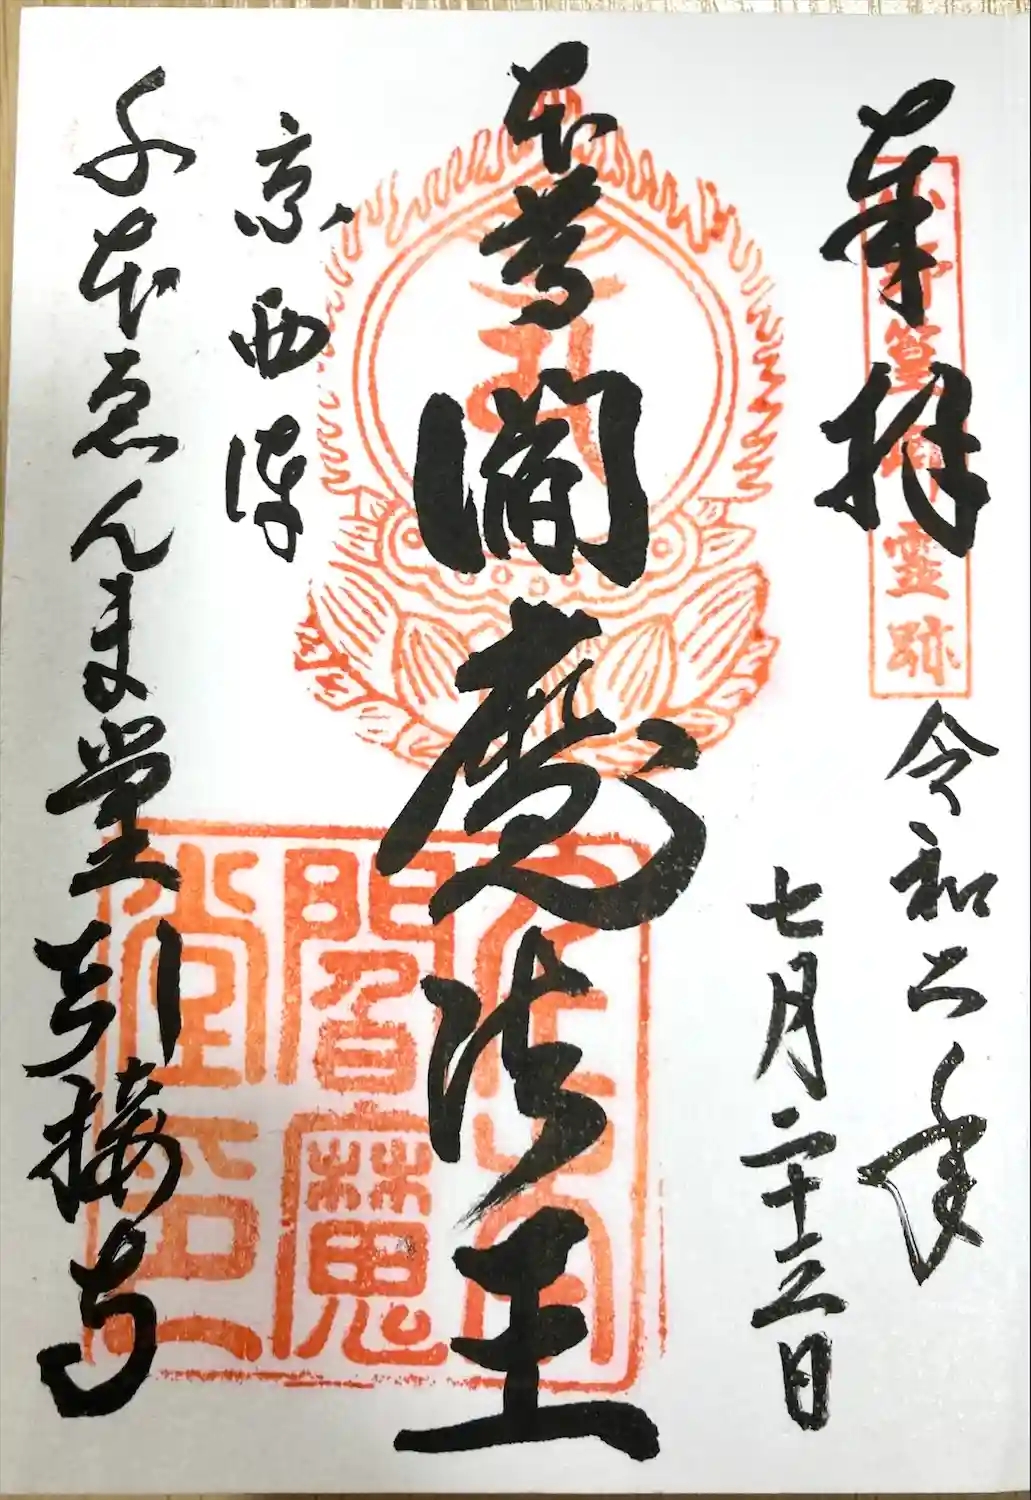 奉拝
小野篁卿霊跡
令和二年
七月二十三日
本尊
閻魔法王
京西陣
千本ゑんま堂引接寺
閻魔
堂印